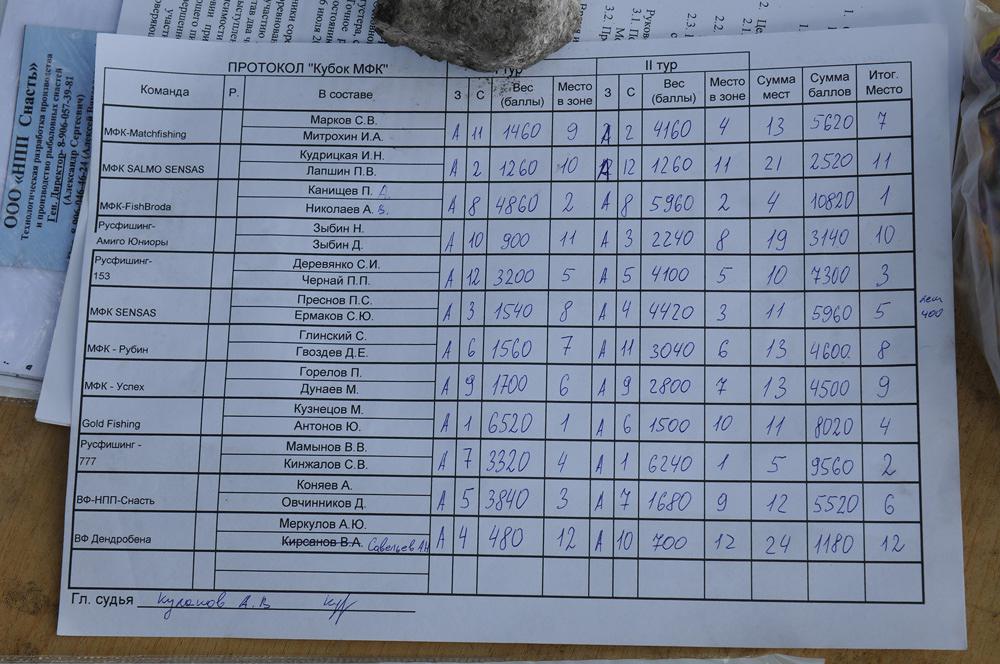 ООО «НПП Снасть»
Технологическая разработка производства
и производство рыболовных снастей
Ген. Директор- 8-906-057-39-81
(Александр Сергеевич)
ПРОТОКОЛ "Кубок МФК"
тур II тур
Команда Р. В составе З С Вес (баллы) Место в зоне З С Вес (баллы) Место в зоне Сумма мест Сумма баллов Итог. Место
Марков С.В.
МФК-Matchfishing Митрохин И.А. А 11 1460 9 А 2 4160 4 13 5620 7
Кудрицкая И.Н.
МФК SALMO SENSAS Лапшин П.В. А 2 1260 10 А 12 1260 11 21 2520 11
Канищев П. Д.
МФК-FishBroda Николаев А. В. А 8 4860 2 А 8 5960 2 4 10820 1
Русфишинг- Зыбин Н.
Амиго Юниоры Зыбин Д. А 10 900 11 А 3 2240 8 19 3140 10
Русфишинг- Деревянко С.И.
153 Чернай П.П. А 12 3200 5 А 5 4100 5 10 7300 3
Преснов П.С.
МФК SENSAS Ермаков С.Ю. А 3 1540 8 А 4 4420 3 11 5960 5
400
Глинский С.
МФК - Рубин Гвоздев Д.Е. А 6 1560 7 А 11 3040 6 13 4600 8
Горелов П.
МФК - Успех Дунаев М. А 9 1700 6 А 9 2800 7 13 4500 9
Кузнецов М.
Gold Fishing Антонов Ю. А 1 6520 1 А 6 1500 10 11 8020 4
Русфишинг - Мамынов В.В.
777 Кинжалов С.В. А 7 3320 4 А 1 6240 1 5 9560 2
Коняев А.
ВФ-НПП-Снасть Овчинников Д. А 5 3840 3 А 7 1680 9 12 5520 6
Меркулов А.Ю.
ВФ Дендробена Кирсанов В.А. Савельев АН А 4 480 12 А 10 700 12 24 1180 12
Гл. судья Куланов А.В